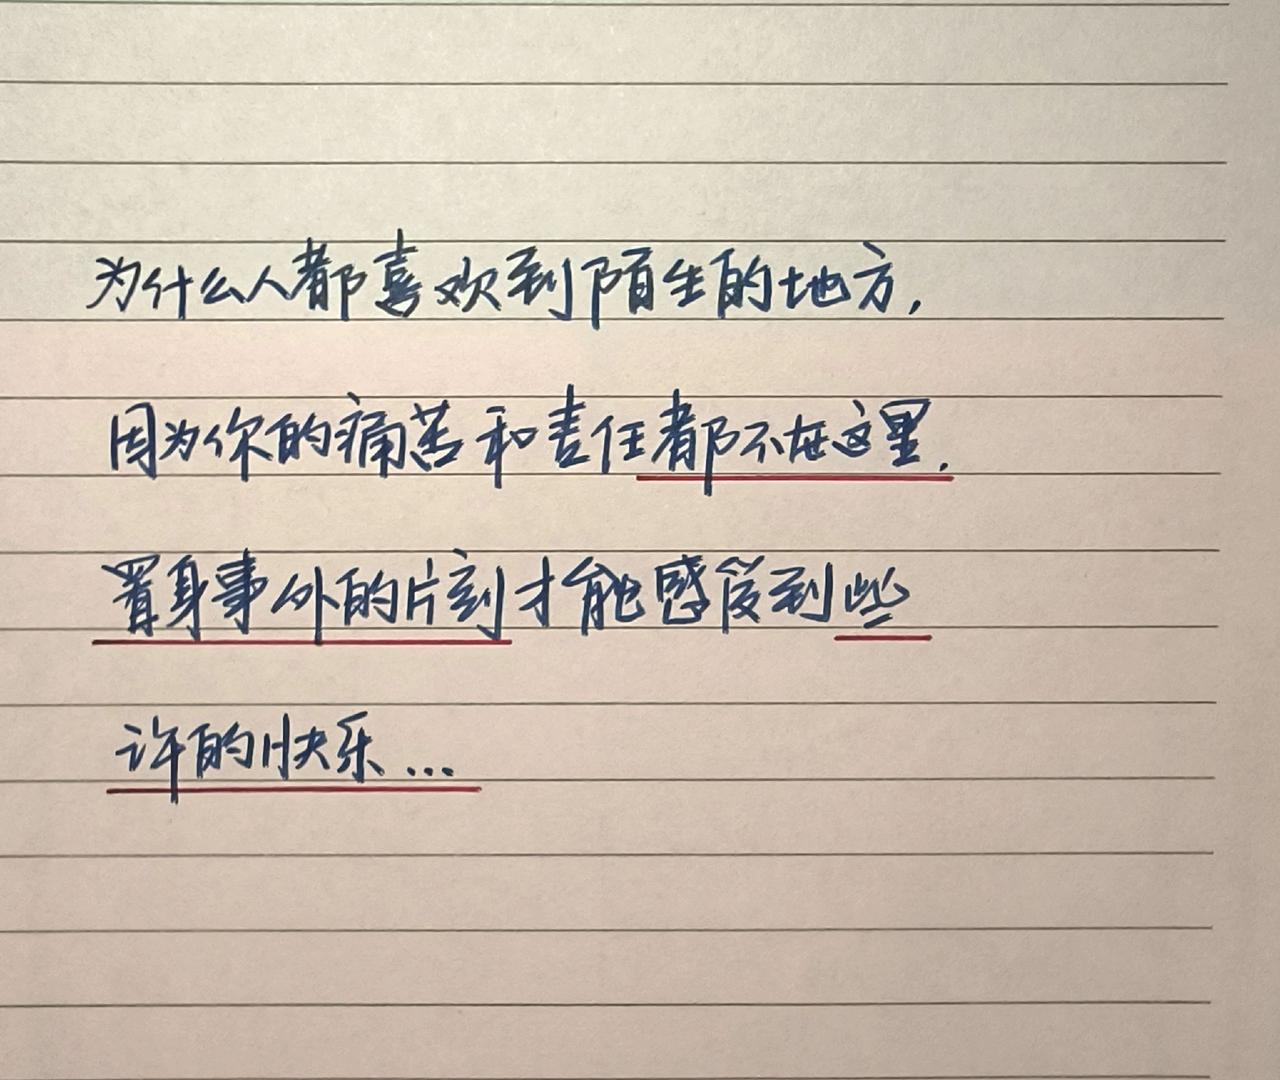 为什么人都喜欢到陌生的地方,
因为你的痛苦和责任都不在这里.
置身事外的片刻才能感受到些
许的快乐...